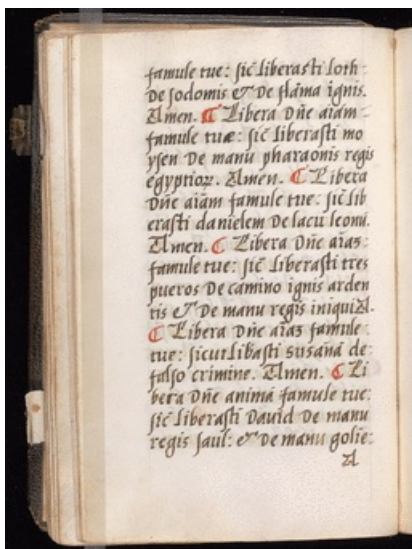 famule tue: sic̄ liberasti loth
de sodomis & de flāma ignis.
Amen. ¶ Libera Dn̄e aīam
famule tuæ: sic̄ liberasti mo
ysen de manu pharaonis regis
egyptioꝝ. Amen. ¶ Libera
Dn̄e aīam famule tue: sic̄ lib
erasti danielem de lacu leonū.
Amen. ¶ Libera Dn̄e aīaꝫ
famule tue: sic̄ liberasti tres
pueros de camino ignis arden
tis & de manu regis iniqui A.
¶ Libera Dn̄e aīaꝫ famule
tue: sicut libasti susanā de
falso crimine. Amen. ¶ Li
bera Dn̄e animā famule tue:
sic̄ liberasti David de manu
regis saul: & de manu golie:
A